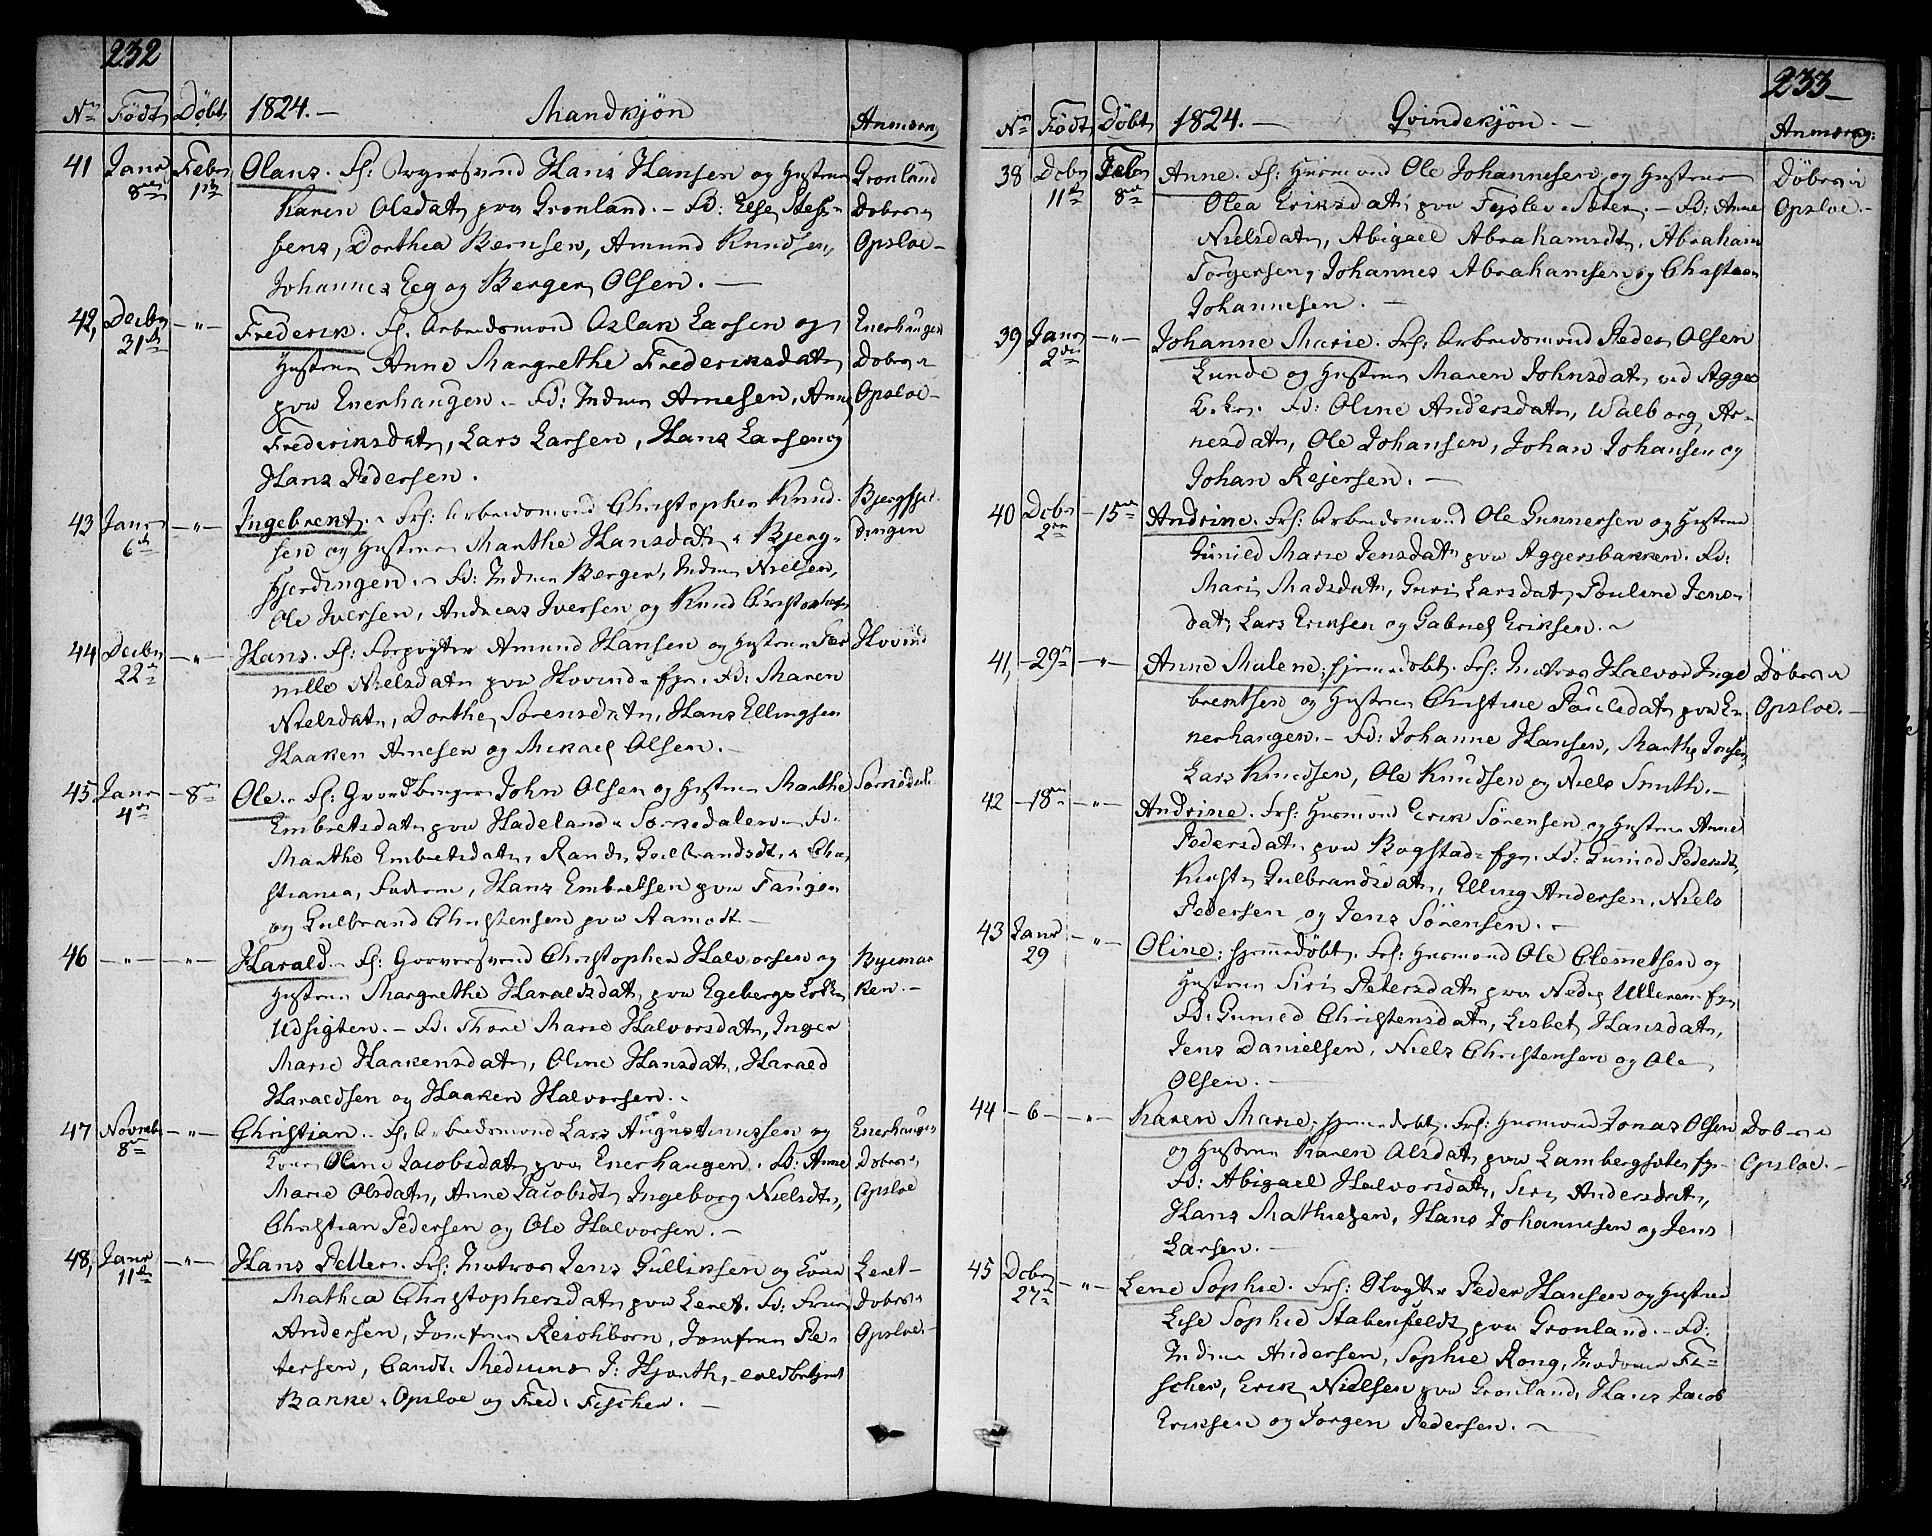 232
Nr Født Døbt 1824.— Mandkjøn Anmærkn
41 Janr 8de Febr 1ste Olaus. F: Hans Hansen og Hustrue Grønland
Karen Olsdatr paa Grønland.— Fd: Else Dobes i
Dorthea Bernsen, Amund Knudsen, Opsloe—
Johannes Eeg og Berger Olsen.—
42, Decbr 31te —"— Frederik. F: Arbeidsmand Aslak Larsen og Enerhaugen
Hustrue Anne Margrethe Frederiksdatr Dobes i
paa Enerhaugen.— Fd: Arnesen, Anne Opsloe—
Frederiksdatr, Lars Larsen, Hans Larsen og
Hans Pedersen.
43 Janr 6te —"— Ingebrent. Frs: Arbeidsmand Christopher Knud- Bjergfjer-
sen og Hustrue Marthe Hansdatr i Bjerg- dingen
fjerdingen.— Fd: Berger, Nielsen,
Ole Iversen, Andreas Iversen og Knud
44 Decbr 22de —"— Hans. F: Forpagter Amund Hansen og Hustrue Per- Hovind
nille Nielsdatr paa Hovind. Fd: Maren
Nielsdatr, Dorthe Sørensdatr, Hans Ellingsen
Haaken Arnesen og Mikael Olsen.—
45 Janr 4de — 8de Ole. F: Gaardbruger John Olsen og Hustrue Marthe
Embretsdatr paa Hadeland i Sørkedalen.— Fd:
Marthe Embretsdatr, Rand Gulbrandsdt, i Chri-
stiania, Hans Embretsen paa Tangen
og Gulbrand Christensen paa Aamodt—
46 —"— —"— Harald. F: Garversvend Christopher Halvorsen og Byemar-
Hustrue Margrethe Haraldsdatr paa Egebergs ken.—
Udsigten.— Fd: Thore Marie Halvorsdatr, Inger
Marie Haakensdatr, Oline Hansdatr, Harald
Haraldsen og Haaken Halvorsen.
47 Novmbr 8de —"— Christian. F: Arbeidsmand Lars Augustinussen og Enerhaugen
Kone Oline Jacobsdatr paa Enerhaugen. Fd: Anne Dobes i
Marie Olsdatr, Anne Jacobsdt, Ingeborg Nielsdt, Opsloe
Christian Pedersen og Ole Halvorsen.—
48, Janr 11te —"— Hans Petter. Frs: Matros Jens Gulliksen og Kone Leret—
Mathea Christophersdatr paa Leret. Fd: Frue Dobes i
Andersen, Jomfrue Reichborn, Jomfrue Pe- Opsloe.—
tersen, Candt. Medicine J: Hjorth,
Banke i Opsloe og Fred: Fischer.—
233—
Nr Født Döbt 1824.— Qvindekjön.— Anmærkg:
38 Dcbr 11te Febr 8de Anne. F: Huusmand Ole Johannesen og Hustrue Döbes i
Olea Eriksdatr paa Fyslev Sæter.— Fd: Anne Opsloe.—
Nielsdatr, Abigael Abrahamsdt, Abraham
Torgersen, Johannes Abrahamsen og Christian
Johannesen.—
39 Janr 2den —"— Johanne Marie. Frs: Arbeidsmand Peder Olsen
Lunde og Hustrue Maren Johnsdatr ved Agges
Fd: Oline Andersdatr, Walborg Ar-
nesdatr, Ole Johansen, Johan Johansen og
Johan Rejersen.—
40 Dcbr 2den —15de Andrine. Frs: Arbeidsmand Ole Gunnersen og Hustrue
Gunild Marie Jensdatr paa Aggersbakken. Fd:
Mari Madsdatr, Guri Larsdatr, Pouline Jens-
datr, Lars Eriksen og Gabriel Eriksen.
41, —29de —"— Anne Malene; hjemmedøbt. Frs: Matros Halvor Inge- Döbes i
brentsen og Hustrue Christine Poulsdatr paa E- Opsloe.—
nerhaugen.— Fd: Johanne Hansen, Marthe Jonsen,
Lars Knudsen, Ole Knudsen og Niels Smith.—
42 —18de —"— Andrine. Frs: Huusmand Erik Sørensen og Hustrue Anne
Pedersdatr paa Bogstad. Fd: Gunild Pedersdt,
Kirsti Gulbrandsdatr, Elling Andersen, Niels
Pedersen og Jens Sørensen.—
43 Janr 29 —"— Oline; hjemmedøbt. Frs: Huusmand Ole Clemetsen og
Hustrue Siri Petersdatr paa Nedre Ullern
Fd: Gunild Christensdatr, Lisbet Hansdatr,
Jens Danielsen, Niels Christensen og Ole
Olsen.—
44 —6— —"— Karen Marie; hjemmedobt. Frs: Huusmand Jonas Olsen Dobes i
og Hustrue Karen Olsdatr paa Lambergsæter Opsloe.—
Fd: Abigael Halvorsdatr, Siri Andersdatr,
Hans Mathiesen, Hans Johannesen og Jens
Larsen.—
45 Dcbr 27de —"— Lene Sophie. Frs: Slagter Peder Hansen og Hustrue
Lise Sophie Stabenfeldt paa Gronland.— Fd:
Andersen, Sophie Rong, Madame Fi-
scher, Erik Nielsen paa Gronland, Hans Jacob
Eriksen og Jorgen Pedersen.—